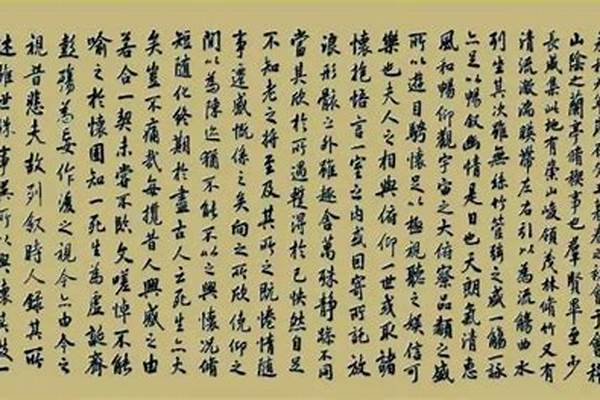 永和九年歲在癸丑暮春之初會于會稽
山陰之蘭亭脩稧事也羣賢畢至少
長咸集此地有崇山峻領茂林脩竹又有
清流激湍暎帶左右引以為流觴曲水
列坐其次雖無絲竹管絃之盛一觴一詠
亦足以暢敘幽情是日也天朗氣清惠
風和暢仰觀宇宙之大俯察品類之盛
所以遊目騁懷足以極視聽之娛信可
樂也夫人之相與俯仰一世或取諸
懷抱悟言一室之內或因寄所託放
浪形骸之外雖趣舍萬殊靜躁不同
當其欣於所遇暫得於己怏然自足
不知老之將至及其所之既惓情隨
事遷感慨係之矣向之所欣俛仰之
閒以為陳迹猶不能不以之興懷況脩
短隨化終期於盡古人云死生亦大
矣豈不痛哉每攬昔人興感之由
若合一契未嘗不臨文嗟悼不能
喻之於懷固知一死生為虛誕齊
彭殤為妄作後之視今亦由今之
視昔悲夫故列敘時人錄其所
述雖世殊事異所以興懷其致一